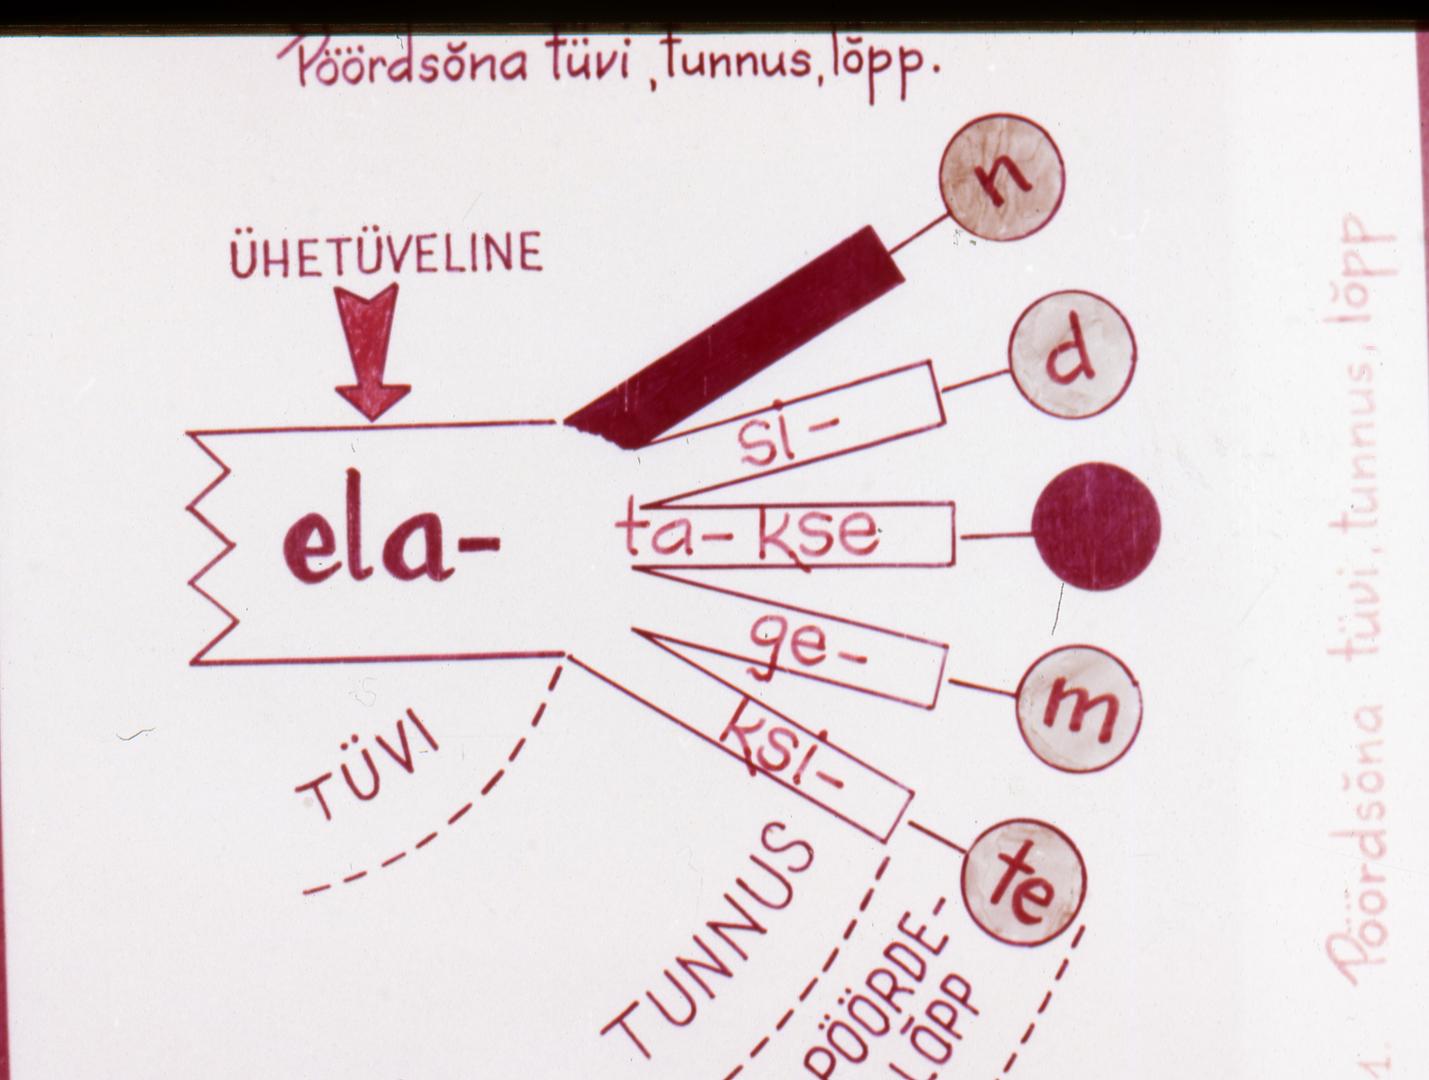 Pöördsŏna tüvi, tunnus, lŏpp.
ÜHETÜVELINE
ela-
n
si-
d
ta-kse
ge-
m
ksi-
te
TÜVI
TUNNUS
PÖÖRDE-
LŎPP
1. Pöördsŏna tüvi, tunnus, lŏpp